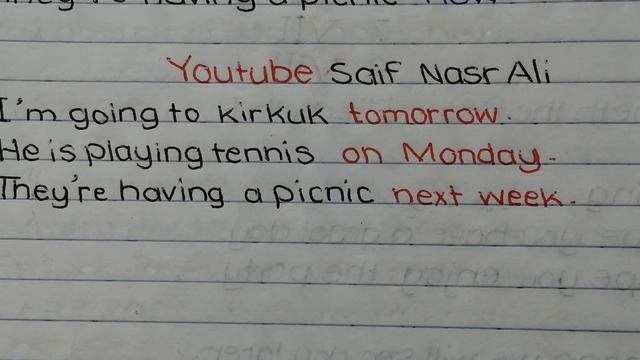 They're having a picnic now
Youtube Saif Nasr Ali
I'm going to Kirkuk tomorrow.
He is playing tennis on Monday.
They're having a picnic next week.